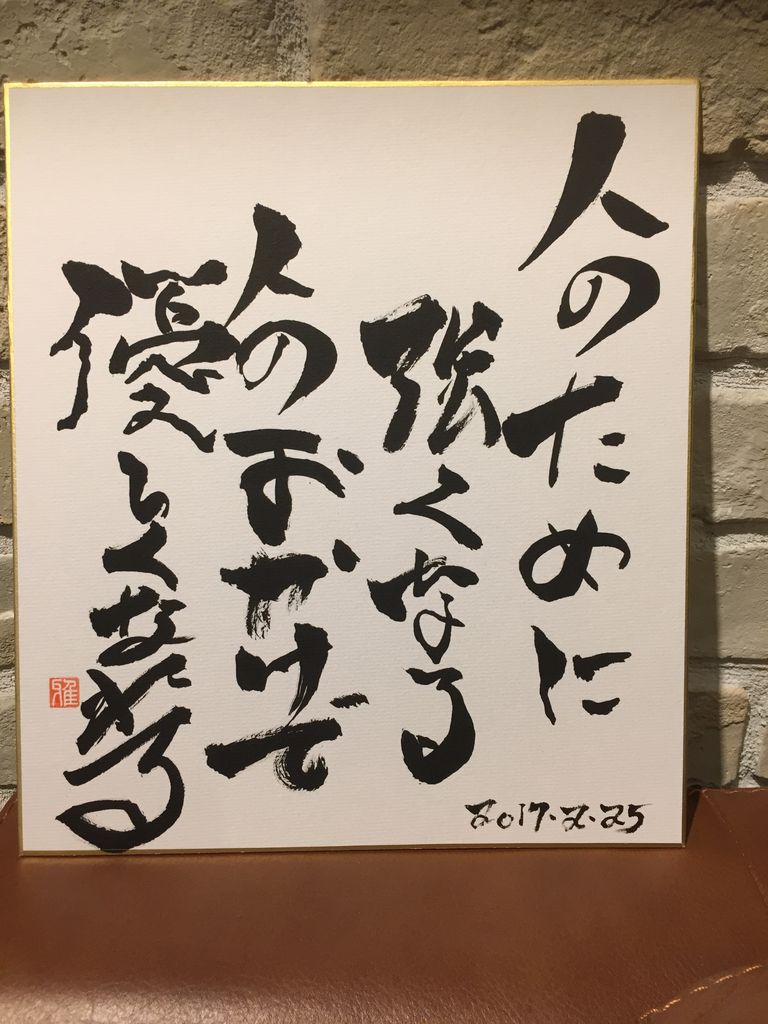 人のために
強くなる
人のおかげで
優しくなれる
2017.2.25
雅